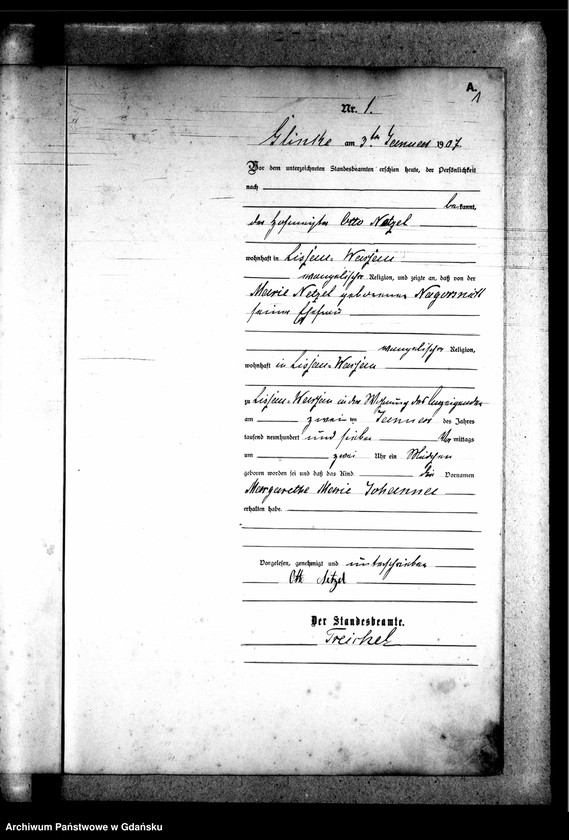 A.
1
Nr. 1.
Glinke am 3ten Januar 1907.
Vor dem unterzeichneten Standesbeamten erschien heute, der Persönlichkeit
nach
bekannt,
der Hofmeister Otto Netzel
wohnhaft in Lissau-Warsau
evangelischer Religion, und zeigte an, daß von der
Marie Netzel geborenen
seiner Ehefrau
evangelischer Religion,
wohnhaft in
zu in der Wohnung des Anzeigenden
am zweiten Januar des Jahres
tausend neunhundert und sieben Vormittags
um zwei Uhr ein Mädchen
geboren worden sei und daß das Kind die Vornamen
Margarethe Marie Johanna
erhalten habe.
Vorgelesen, genehmigt und unterschrieben
Otto Netzel
Der Standesbeamte.
Treichel
Archiwum Państwowe w Gdańsku